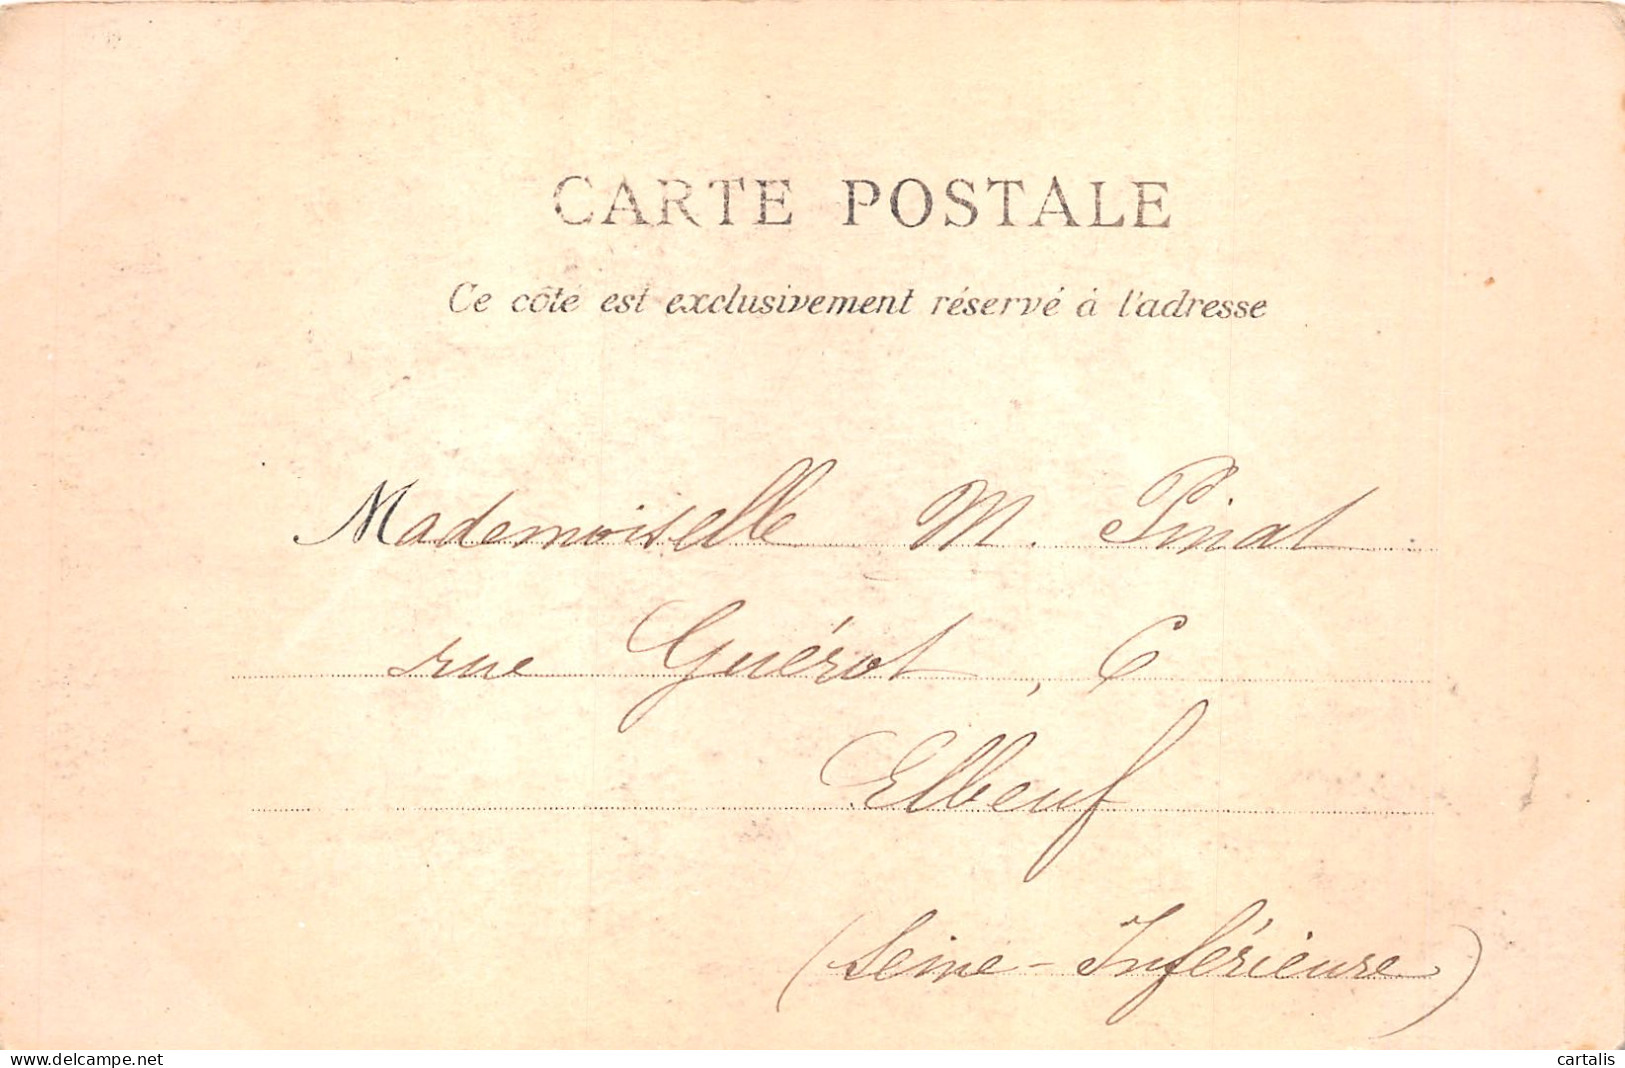 CARTE POSTALE
Ce côté est exclusivement réservé à l'adresse
Mademoiselle M. Pinat
rue Guérot, 6
Elbeuf
(Seine-Inférieure)
www.delcampe.net
cartalis